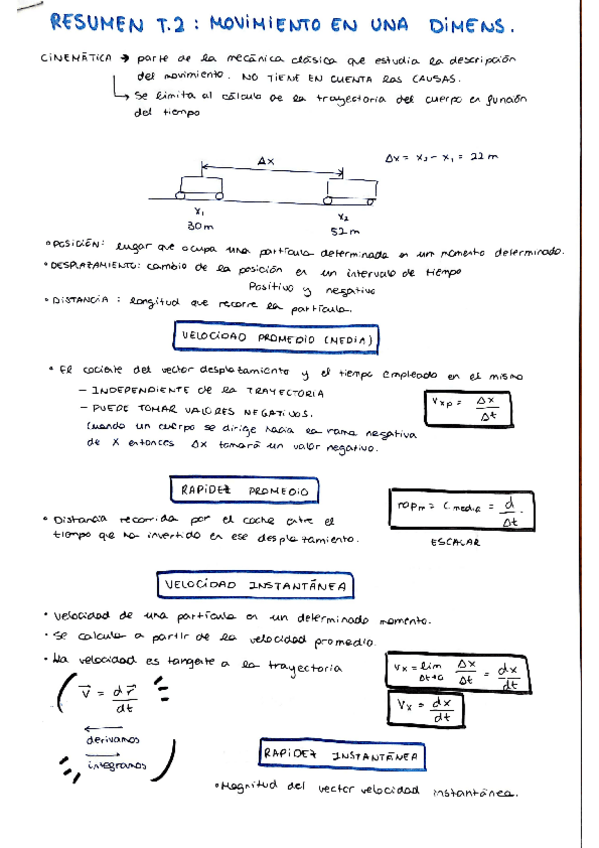 RESUMEN T.2 : MOVIMIENTO EN UNA DIMENS.
CINEMÁTICA → parte de la mecánica clásica que estudia la descripción
del movimiento. NO TIENE EN CUENTA las CAUSAS.
↳ Se limita al cálculo de la trayectoria del cuerpo en función
del tiempo
Δx
Δx = x₂ - x₁ = 22 m
x₁
x₂
30m
52 m
• POSICIÓN: lugar que ocupa una partícula determinada en un momento determinado.
• DESPLAZAMIENTO: cambio de la posición en un intervalo de tiempo
Positivo y negativo
• DISTANCIA : longitud que recorre la partícula.
VELOCIDAD PROMEDIO (MEDIA)
• El cociente del vector desplazamiento y el tiempo empleado en el mismo
– INDEPENDIENTE de la TRAYECTORIA
– PUEDE TOMAR VALORES NEGATIVOS.
Cuando un cuerpo se dirige hacia la rama negativa
de X entonces Δx tomará un valor negativo.
Vxp = Δx / Δt
RAPIDEZ PROMEDIO
• Distancia recorrida por el coche entre el
tiempo que ha invertido en ese desplazamiento.
rapm = c.media = d / Δt.
ESCALAR
VELOCIDAD INSTANTÁNEA
• Velocidad de una partícula en un determinado momento.
• Se calcula a partir de la velocidad promedio.
• La velocidad es tangente a la trayectoria
Vx = lim Δt→0 Δx / Δt = dx / dt
Vx = dx / dt
v⃗ = dr⃗ / dt
←
derivamos
→
integramos
RAPIDEZ INSTANTÁNEA
• Magnitud del vector velocidad instantánea.